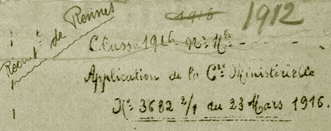 1916 1912
Recrut^t de Rennes
Classe 1916 N° M^le
Application de la C^re Ministérielle
N° 3682 2/1 du 23 Mars 1916.